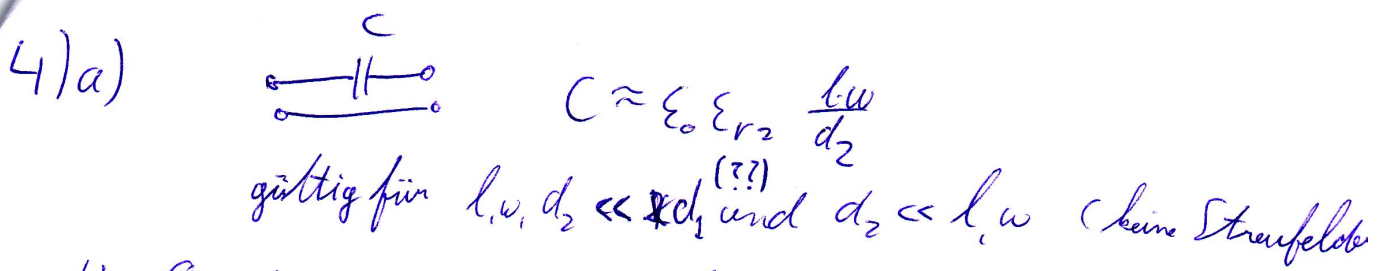 4)a)
C
C ≈ ε₀ εᵣ₂ l·w/d₂
(??)
gültig für l, w, d₂ << d₁ und d₂ << l, w (keine Streufelder